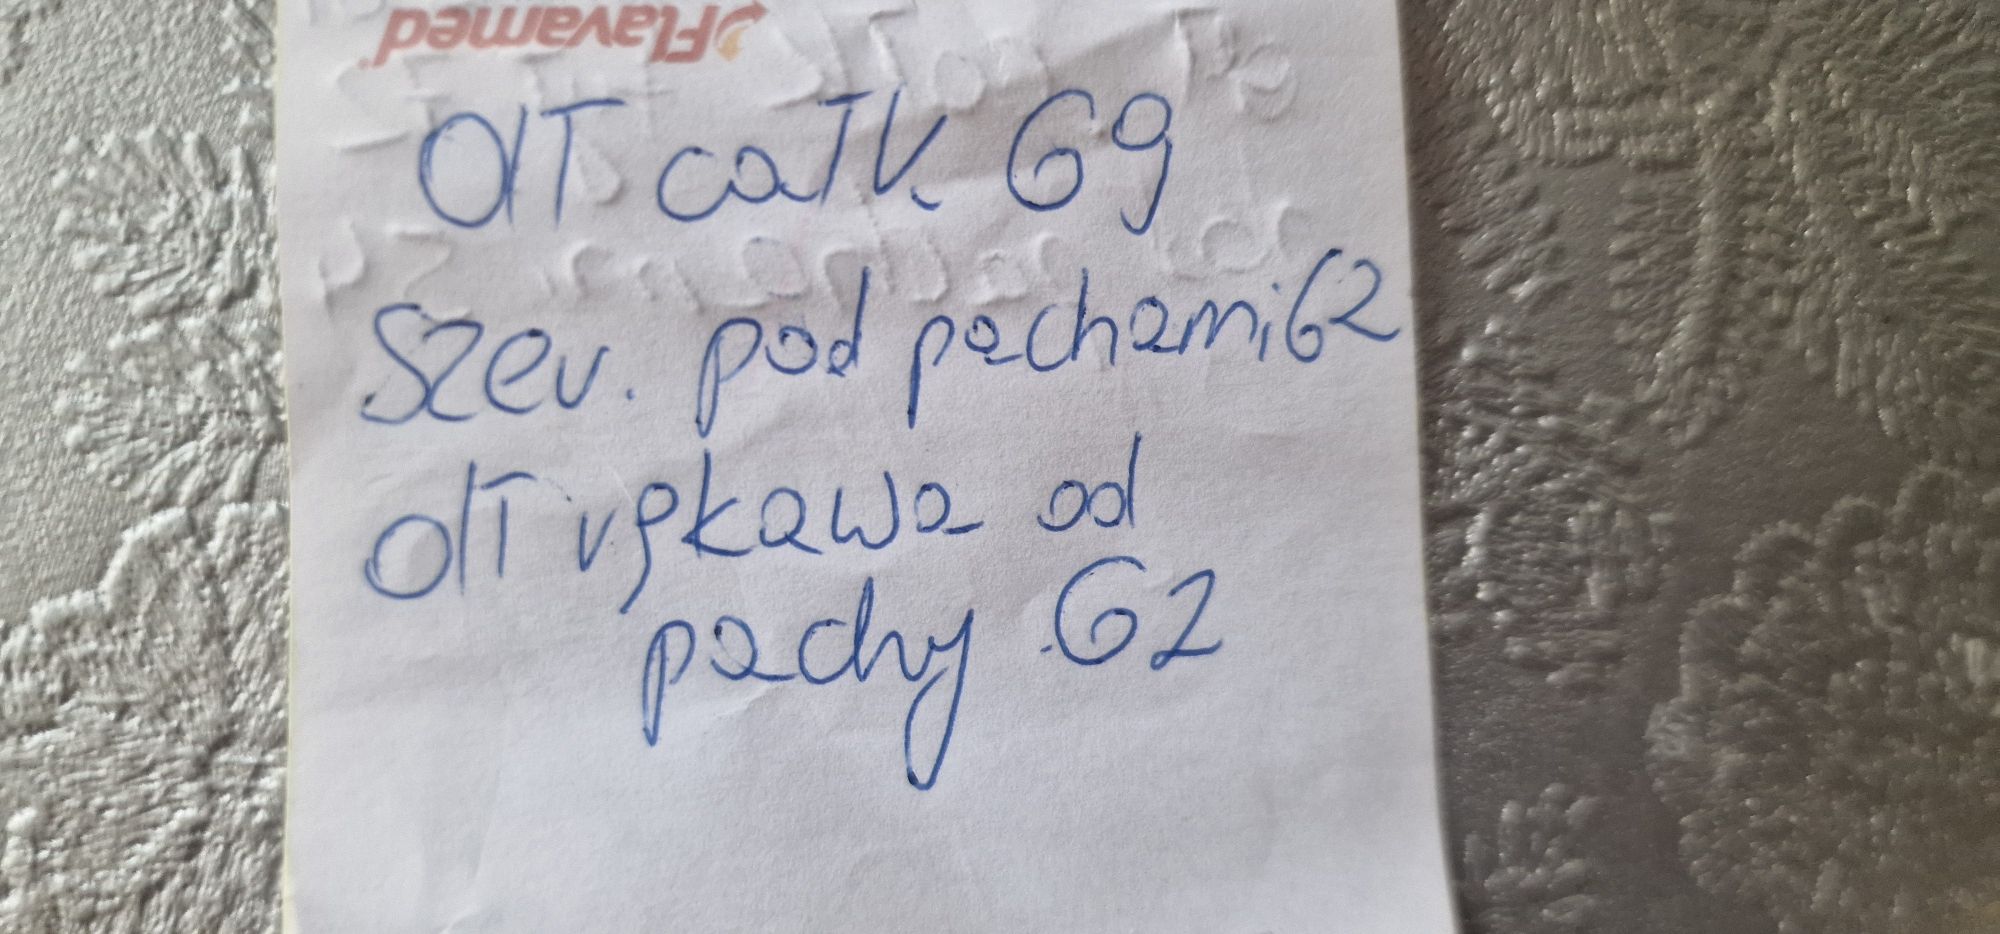 Flavamed
dłT caTK. 69
szer. pod pachami 62
dłT rękawa od
pachy 62